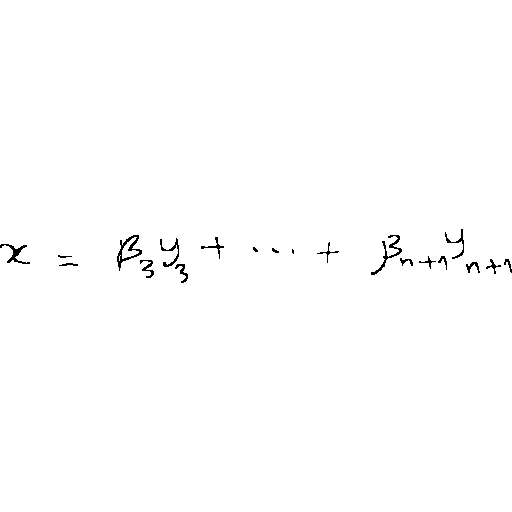 x = β₃y₃ + ... + βₙ₊₁yₙ₊₁